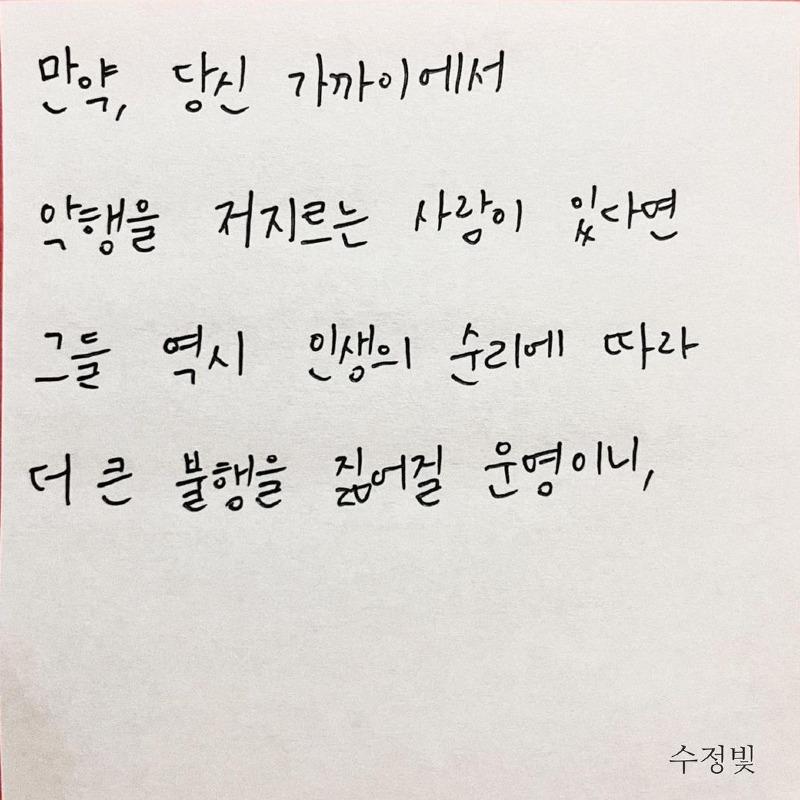 만약, 당신 가까이에서
악행을 저지르는 사람이 있다면
그들 역시 인생의 순리에 따라
더 큰 불행을 짊어질 운영이니,
수정빛